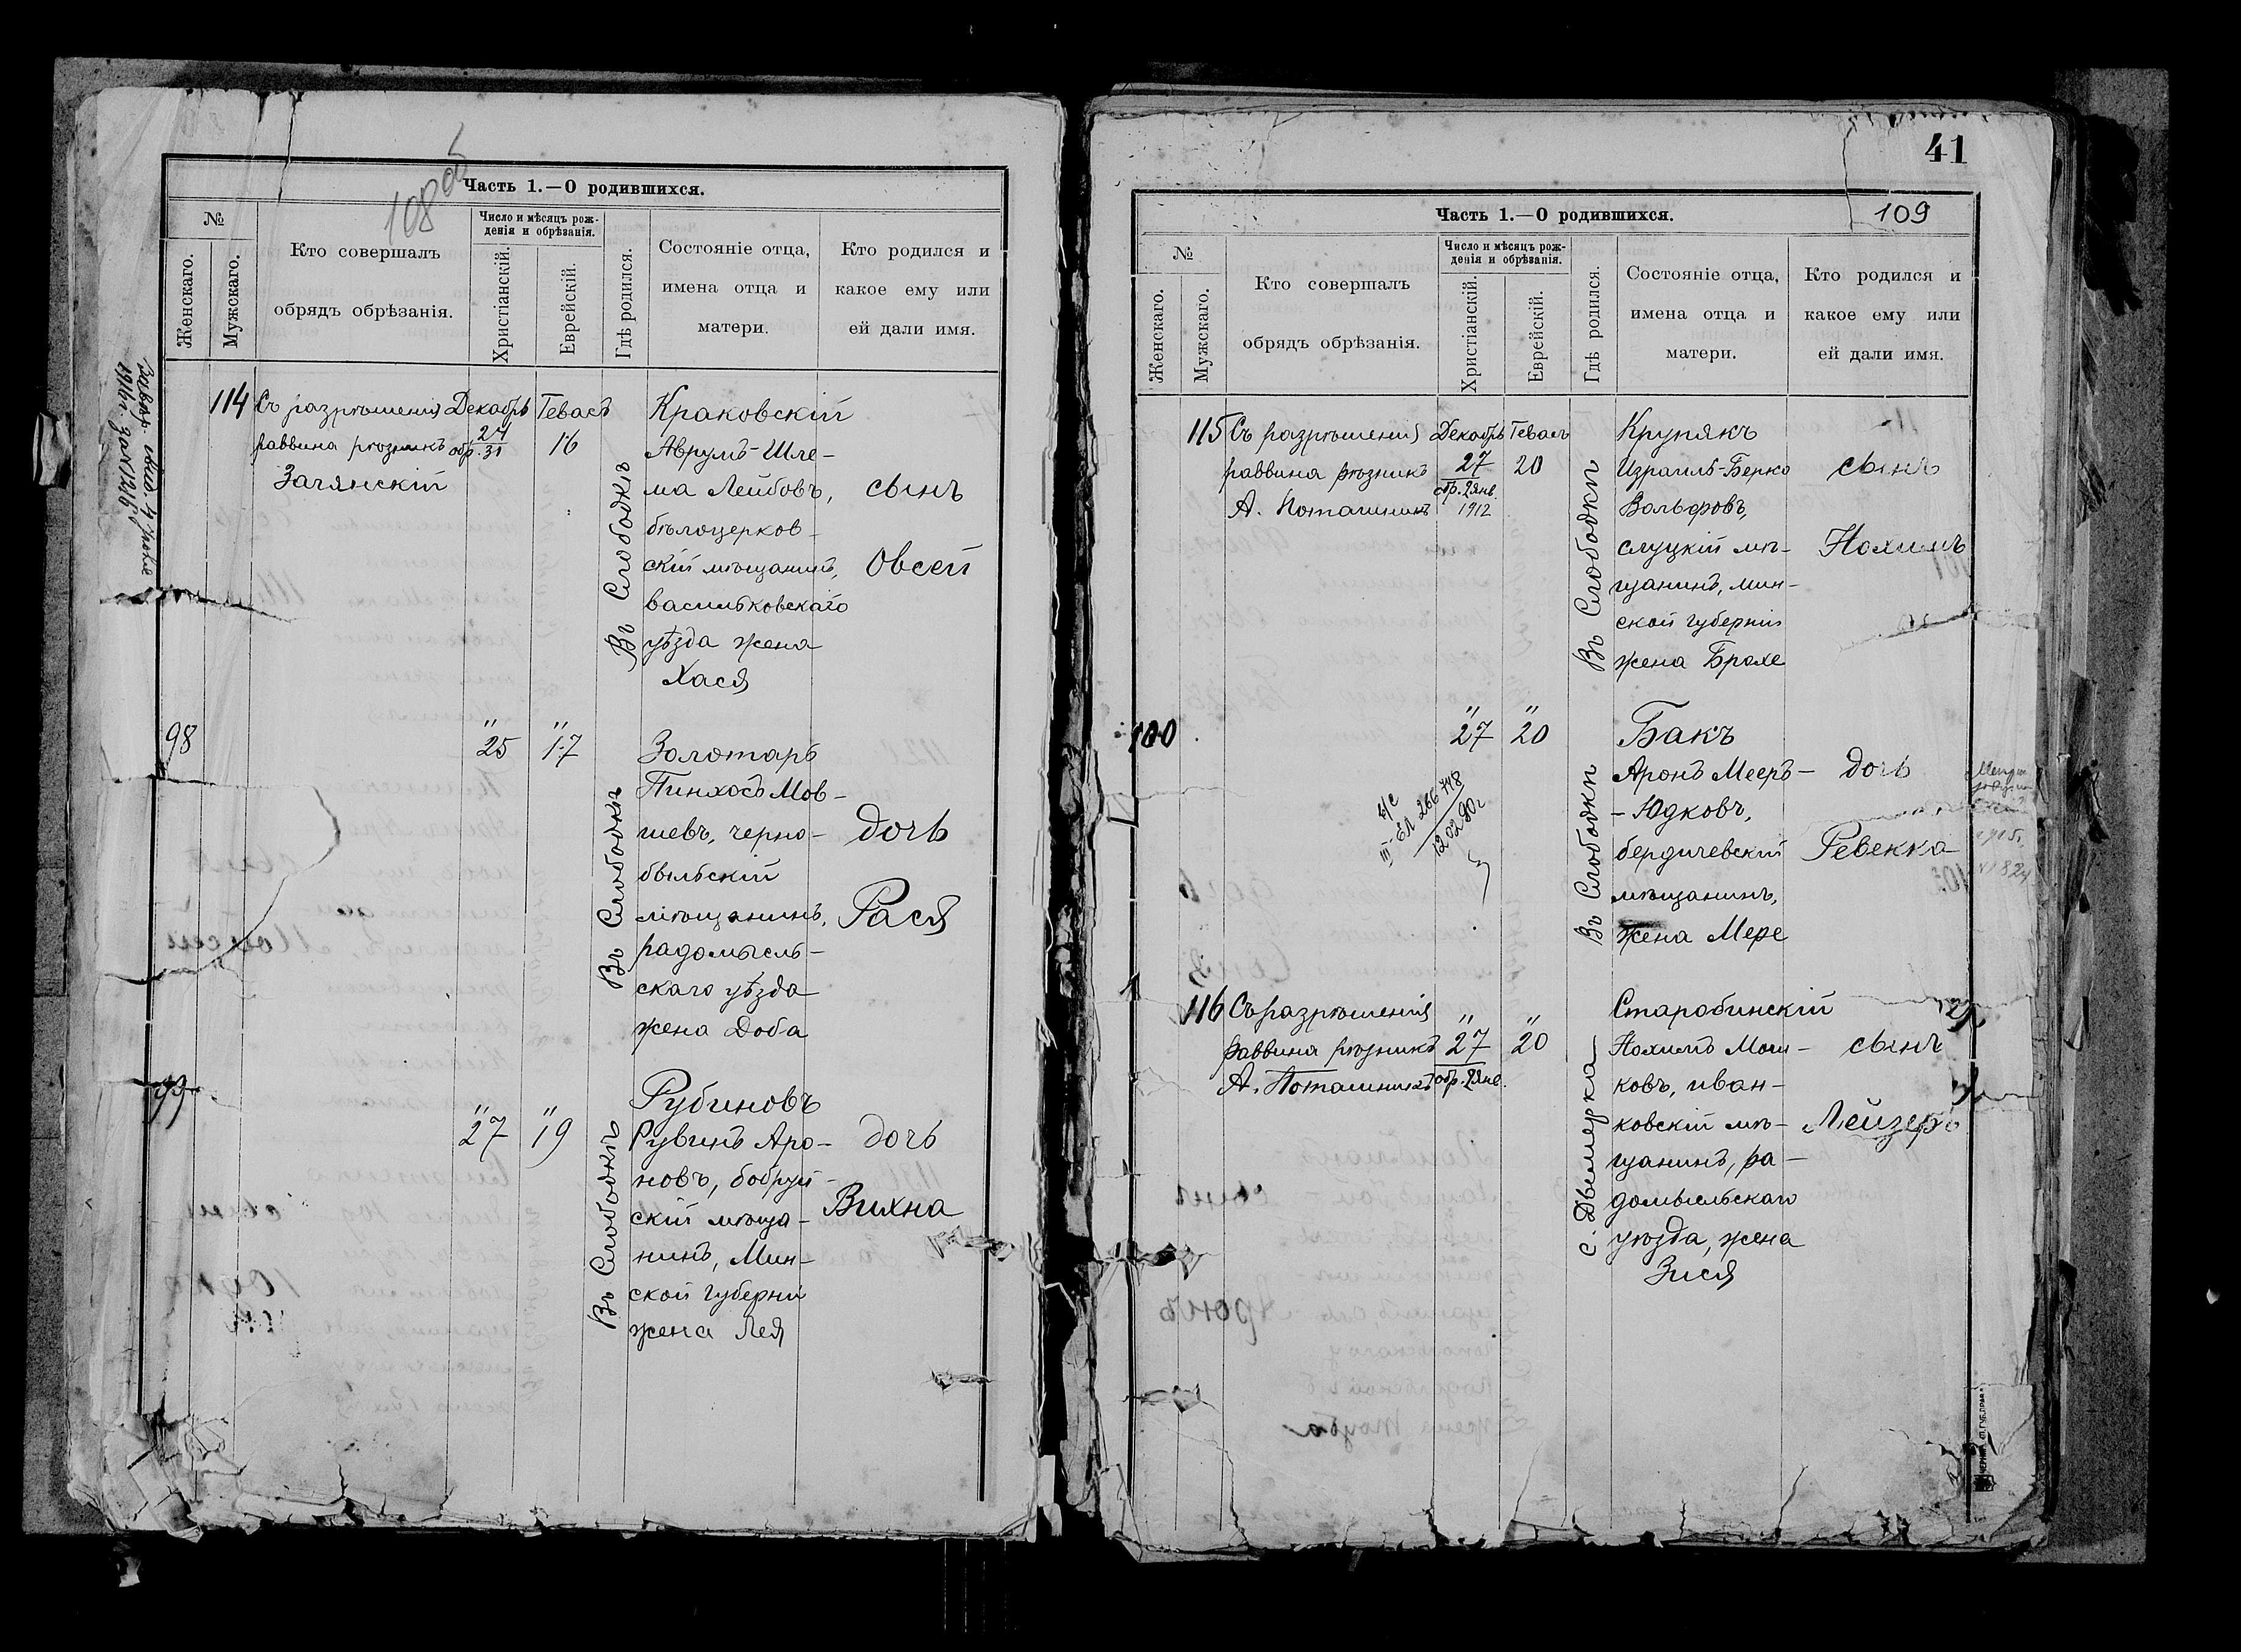 108 об
Часть 1.—О родившихся.
№
Женскаго.
Мужскаго.
Кто совершалъ
обрядъ обрѣзанія.
Число и мѣсяцъ рож-
денія и обрѣзанія.
Христіанскій.
Еврейскій.
Гдѣ родился.
Состояніе отца,
имена отца и
матери.
Кто родился и
какое ему или
ей дали имя.
114
Съ разрѣшенія
раввина рѣзникъ
Загянскій
Декабрь
24
обр. 31
Теваєъ
16
Въ Слободкѣ
Краковскій
Аврумъ-Шле-
ма Лейбовъ,
бѣлоцерков-
скій мѣщанинъ,
васильковскаго
уѣзда жена
Хася
сынъ
Овсей
98
" 25
" 17
Въ Слободкѣ
Золотарь
Пинхосъ Мов-
шевъ, черно-
быльскій
мѣщанинъ,
радомысль-
скаго уѣзда
жена Доба
дочь
Рася
99
" 27
" 19
Въ Слободкѣ
Рубиновъ
Рувинъ Аро-
новъ, бобруй-
скій мѣща-
нинъ, Мин-
ской губерніи
жена Лея
дочь
Вихна
41
109
Часть 1.—О родившихся.
№
Женскаго.
Мужскаго.
Кто совершалъ
обрядъ обрѣзанія.
Число и мѣсяцъ рож-
денія и обрѣзанія.
Христіанскій.
Еврейскій.
Гдѣ родился.
Состояніе отца,
имена отца и
матери.
Кто родился и
какое ему или
ей дали имя.
115
Съ разрѣшенія
раввина рѣзникъ
А. Поташникъ
Декабрь
27
обр. 2 янв.
1912
Теваєъ
20
Въ Слободкѣ
Крупякъ
Израиль-Берко
Вольфовъ,
слуцкій мѣ-
щанинъ, мин-
ской губерніи
жена Брохе
сынъ
Нохимъ
100
" 27
" 20
III-ЕЛ 266748
12 02 90г
Въ Слободкѣ
Бакъ
Аронъ Мееръ-
-Юдковъ,
бердичевскій
мѣщанинъ,
жена Мере
дочь
Ревекка
116
Съ разрѣшенія
раввина рѣзникъ
А. Поташникъ
" 27
обр. 2 янв.
" 20
с. Дымерка
Старобинскій
Нохимъ Мош-
ковъ, иван-
ковскій мѣ-
щанинъ, ра-
домысльскаго
уѣзда, жена
Зися
сынъ
Лейзеръ